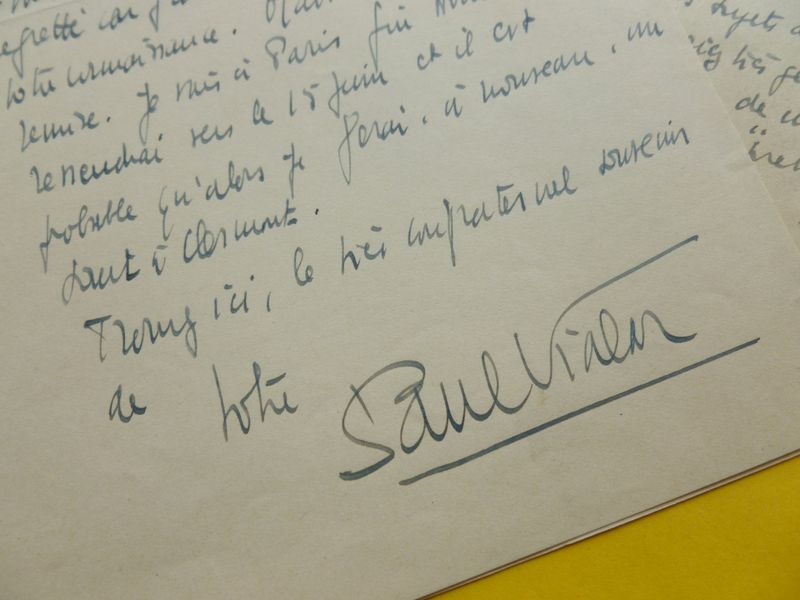 regretté car j'a
votre connaissance.
remise. Je vais à Paris fin
reviendrai vers le 15 juin et il est
probable qu'alors je ferai, à nouveau, un
saut à Clermont.
Trouvez ici, le très confraternel souvenir
de votre Paul Vialar
sujets
très
de